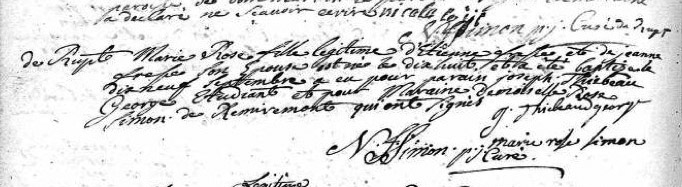 a declaré ne scavoir ecrire Nicolas
N. ff Simon p. j. Curé de Rupt
de Rupt Marie Rose fille legitime d'Etienne et de jeanne
son Epouse est née le dixhuit et a été baptisée le
dixneuf septembre a eu pour parain joseph Thiebeau
George Etudiant et pour Maraine Demoiselle Rose
Simon de Remiremont qui ont signés
j. Thiebaud george
marie rose simon
N. ff Simon p. j. Curé
Legitime